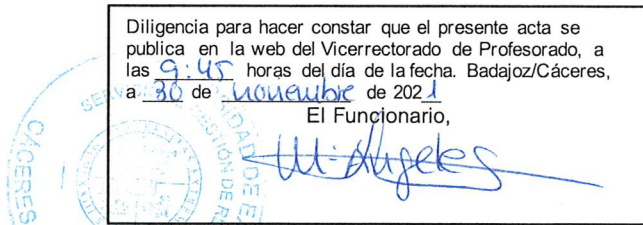 Diligencia para hacer constar que el presente acta se
publica en la web del Vicerrectorado de Profesorado, a
las 9:45 horas del día de la fecha. Badajoz/Cáceres,
a 30 de noviembre de 2021
El Funcionario,
M. Angeles
CÁCERES